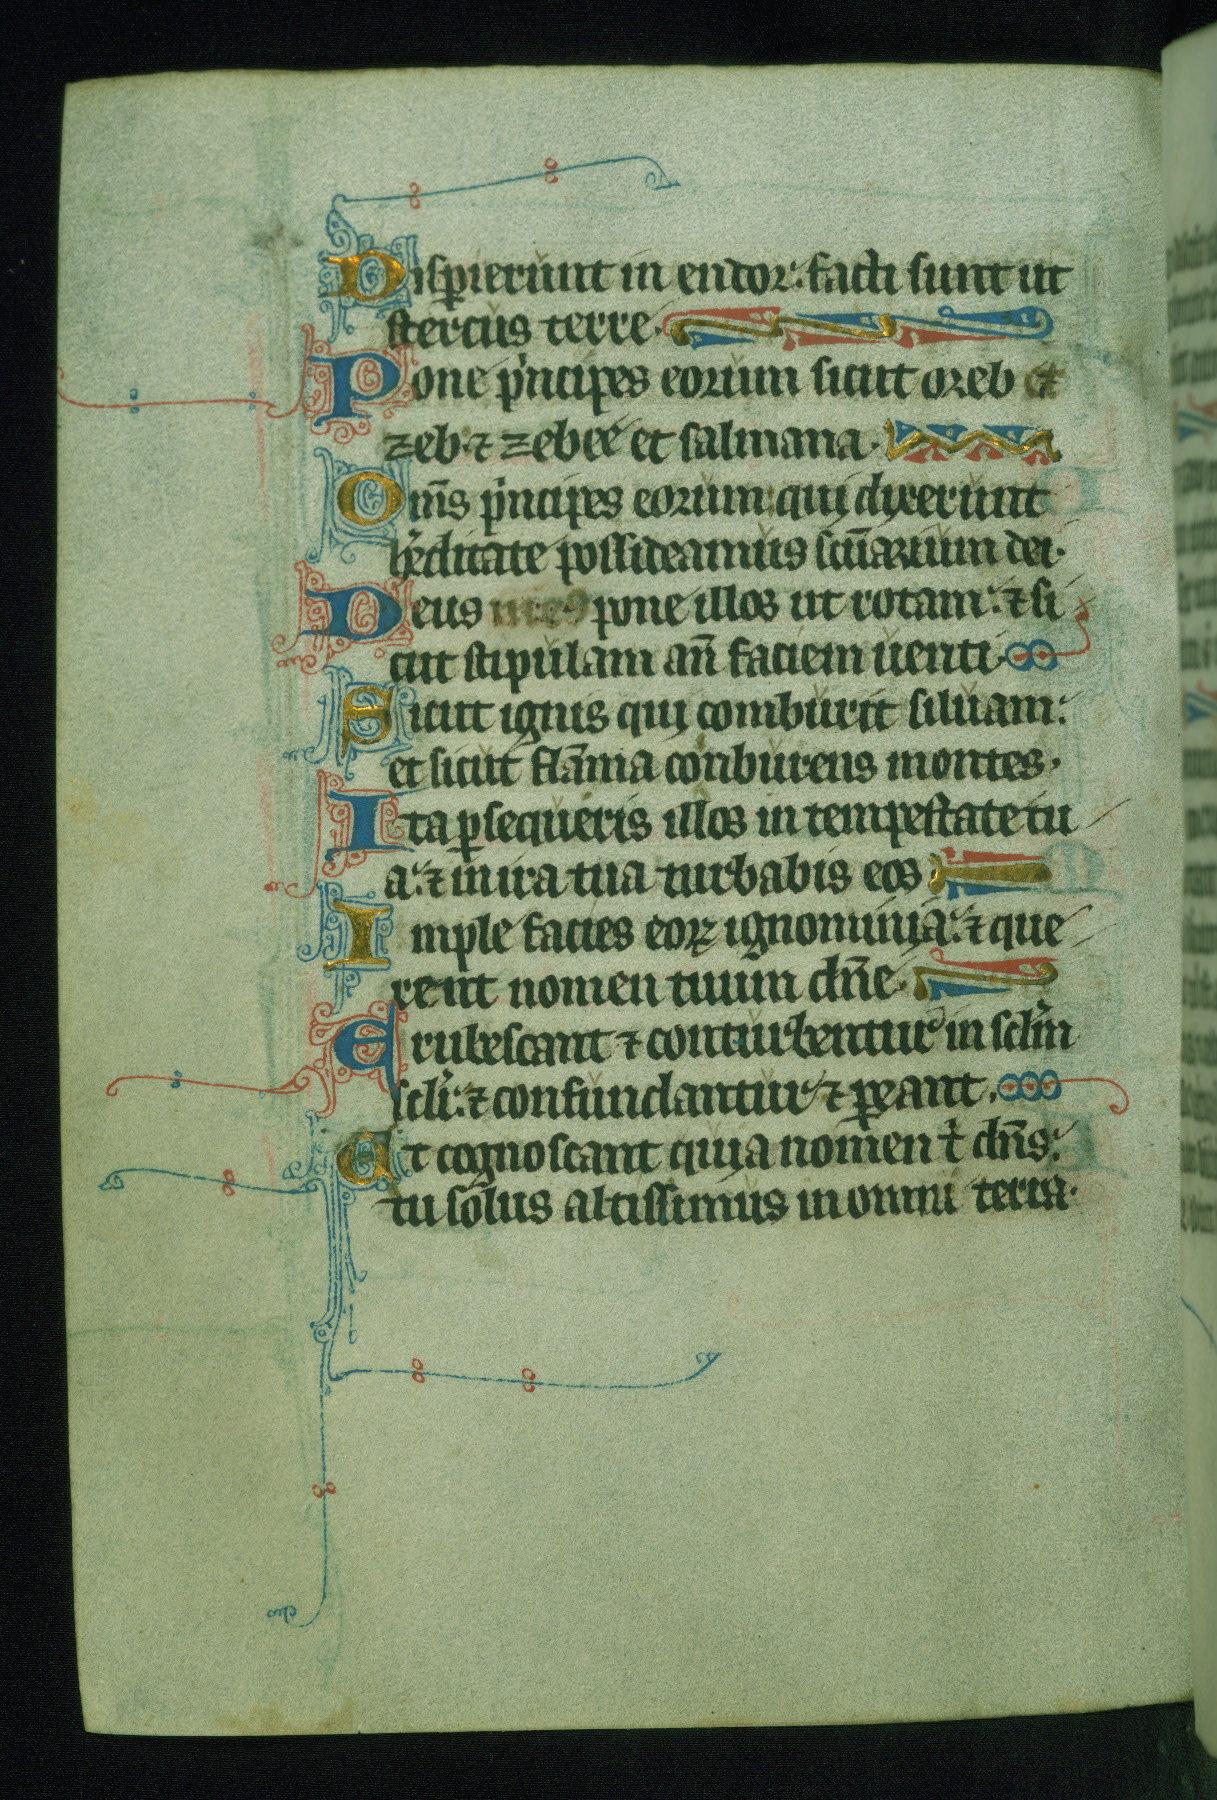 Disp̄ierunt in endor: facti sunt ut
stercus terre.
Pone p͛ncipes eorum sicut oreb et
zeb ⁊ zebee et salmana.
Om̄s p͛ncipes eorum qui dixerunt
h͛editate possideamus sc̄uarium dei.
Deus pone illos ut rotam: ⁊ si
cut stipulam an̄ faciem uenti.
Sicut ignis qui comburit siluam:
et sicut flāma conburens montes.
Ita ꝑsequeris illos in tempestate tu
a: ⁊ in ira tua turbabis eos
Imple facies eoꝝ ignominia: ⁊ que
rent nomen tuum dn̄e.
Erubescant ⁊ conturbentur in sclm̄
scli: ⁊ confundantur ⁊ ꝑeant.
Et cognoscant quia nomen t͛ dn̄s:
tu solus altissimus in omni terra.